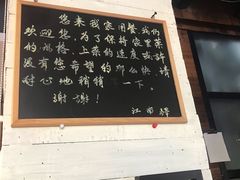 您来我家用餐，我们
欢迎您。为了保持家里菜
的品格，上菜的速度或许
没有您希望的那么快，请
耐心地稍稍一下。
谢谢！
江南驿